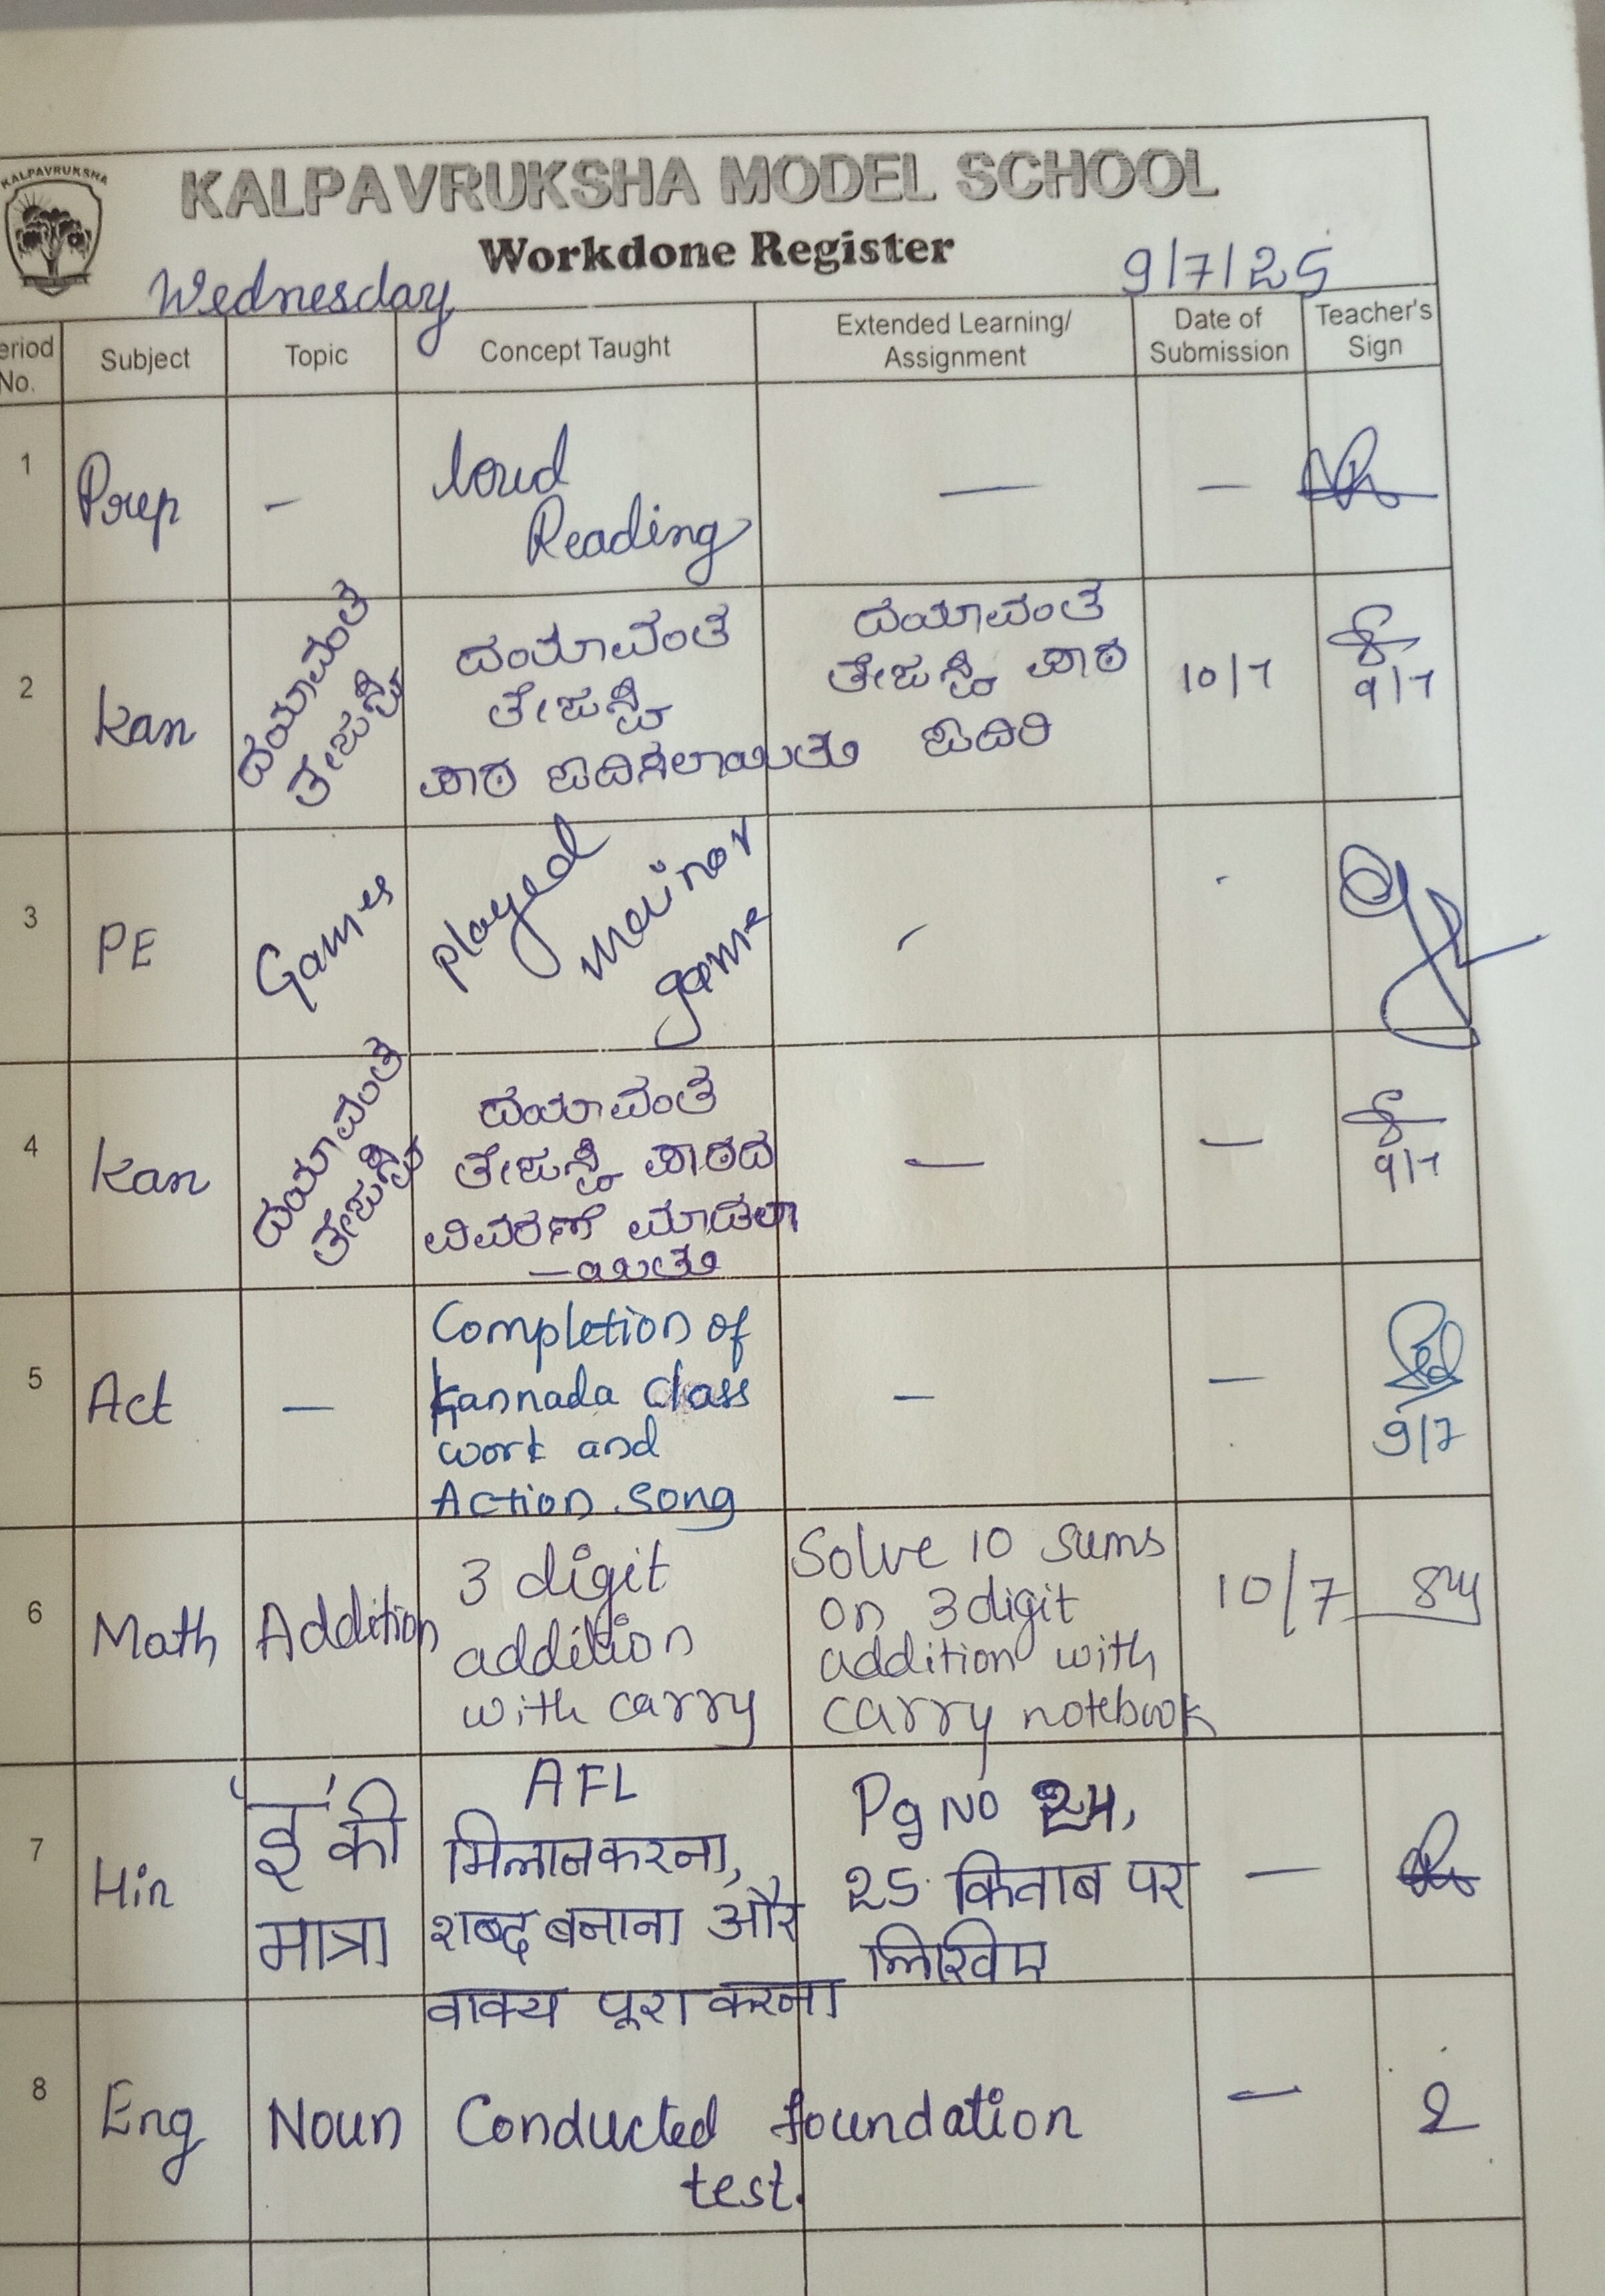 KALPAVRUKSHA
KALPAVRUKSHA MODEL SCHOOL
Workdone Register
Wednesday
9/7/25
eriod No.
Subject
Topic
Concept Taught
Extended Learning/
Assignment
Date of
Submission
Teacher's
Sign
1
Prep
-
loud
Reading
—
—
2
Kan
ದಯಾವಂತ
ತೇಜಸ್ವಿ
ದಯಾವಂತ
ತೇಜಸ್ವಿ
ಪಾಠ ಓದಿಸಲಾಯಿತು
ದಯಾವಂತ
ತೇಜಸ್ವಿ ಪಾಠ
ಓದಿರಿ
10/7
9/7
3
PE
Games
played
game
-
-
4
Kan
ದಯಾವಂತ
ತೇಜಸ್ವಿ
ದಯಾವಂತ
ತೇಜಸ್ವಿ ಪಾಠದ
ವಿವರಣೆ ಮಾಡಲಾ
—ಯಿತು
—
—
9/7
5
Act
—
Completion of
Kannada class
work and
Action song
—
—
9/7
6
Math
Addition
3 digit
addition
with carry
Solve 10 sums
on 3 digit
addition with
carry notebook
10/7
7
Hin
'इ' की
मात्रा
AFL
मिलान करना,
शब्द बनाना और
वाक्य पूरा करना
Pg No 24,
25 किताब पर
लिखिए
—
8
Eng
Noun
Conducted foundation
test.
—